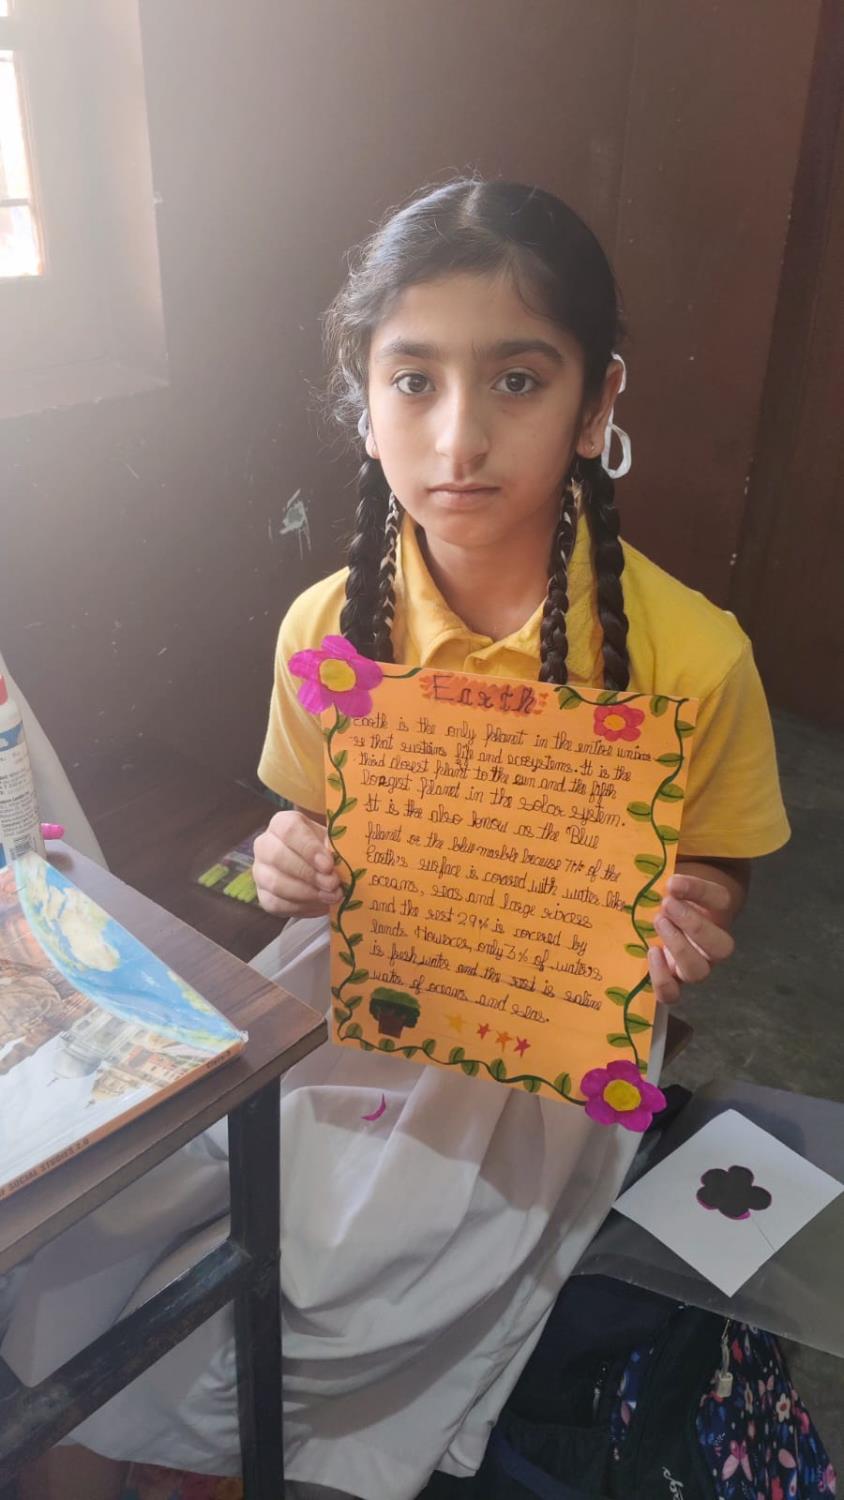 Earth
Earth is the only planet in the entire univer-
se that sustains life and ecosystems. It is the
third closest planet to the sun and the fifth
largest planet in the solar system.
It is the also know as the Blue
planet or the blue marble because 71% of the
Earth's surface is covered with water like
oceans, seas and large rivers
and the rest 29% is covered by
lands. However, only 3% of waters
is fresh water and the rest is saline
water of oceans and seas.
SOCIAL STUDIES 2.0